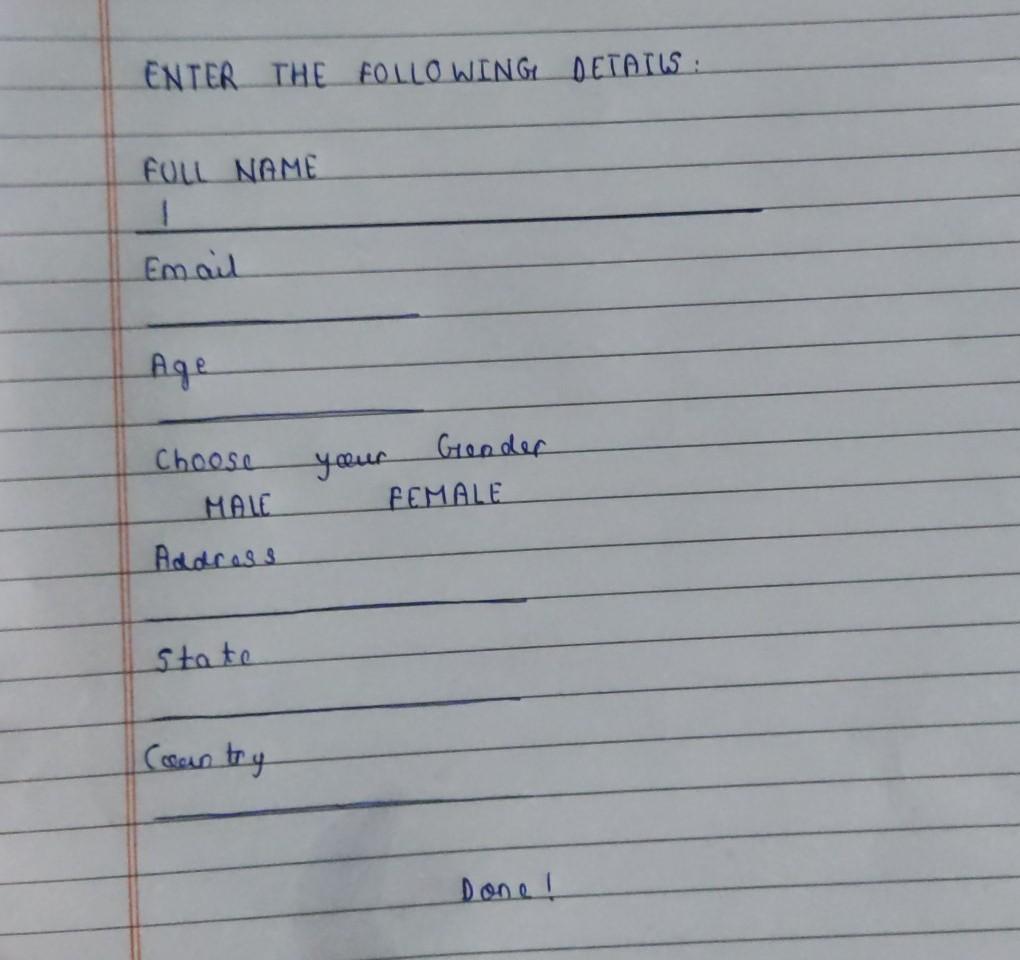 ENTER THE FOLLOWING DETAILS:
FULL NAME
|
Email
Age
Choose your Gender
MALE FEMALE
Address
State
Country
Done!